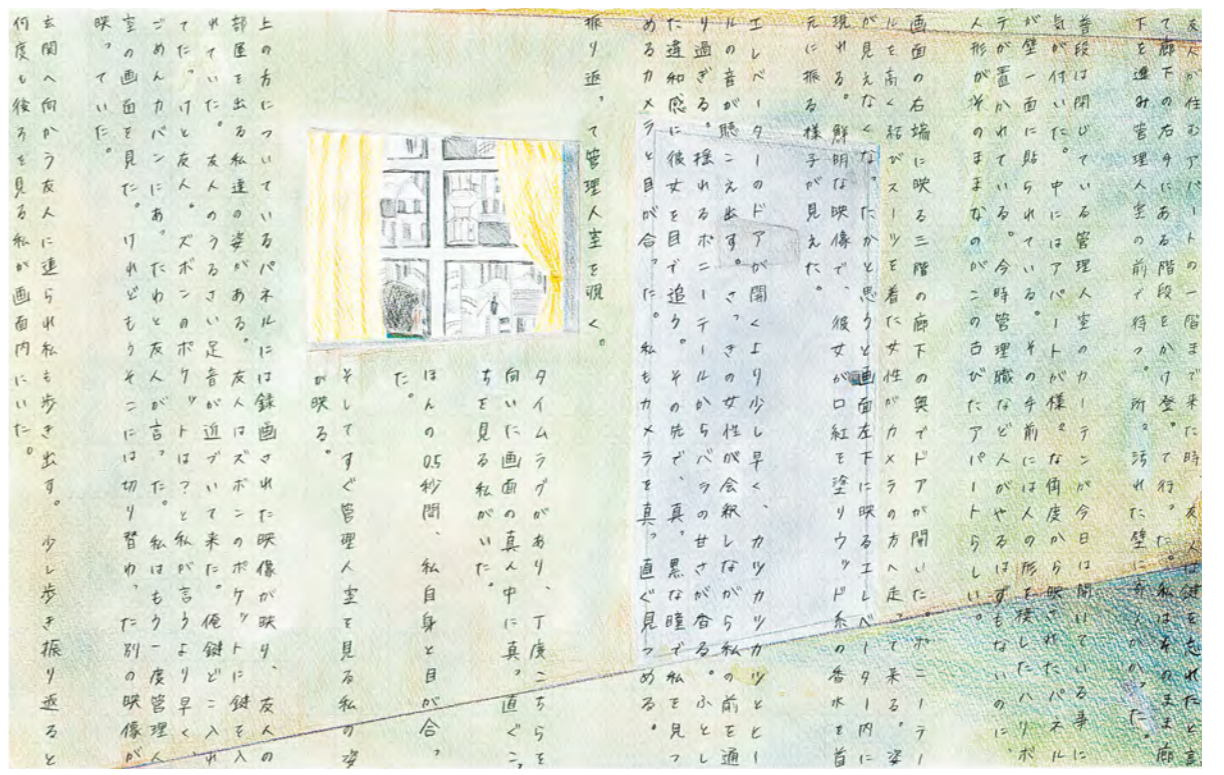 友人が住むアパートの一階まで来た時、友人は鍵を忘れたと言
て廊下の右手にある階段をかけ登って行った。私はそのまま廊
下を進み管理人室の前で待つ。所々汚れた壁に寄りかかった。
普段は閉じている管理人室のカーテンが今日は開いている事に
気が付いた。中にはアパートが様々な角度から映されたパネル
が壁一面に貼られている。その手前には人の形を模したハリボ
テが置かれている。今時管理職など人がやるはずもないのに、
人形がそのままなのがこの古びたアパートらしい。
画面の右端に映る三階の廊下の奥でドアが開いた。ポニーテー
ルを高く結びスーツを着た女性がカメラの方へ走って来る。姿
が見えなくなったかと思うと画面左下に映るエレベーター内に
現れる。鮮明な映像で、彼女が口紅を塗りウッド系の香水を首
元に振る様子が見えた。
エレベーターのドアが開くより少し早く、カツカツカツとヒー
ルの音が聴こえ出す。さっきの女性が会釈しながら私の前を通
り過ぎる。揺れるポニーテールからバラの甘さが香る。ふとし
た違和感に彼女を目で追う。その先で、真っ黒な瞳で私を見つ
めるカメラと目が合った。私もカメラを真っ直ぐ見つめる。
振り返って管理人室を覗く。
タイムラグがあり、丁度こちらを
向いた画面の真ん中に真っ直ぐこっ
ちを見る私がいた。
ほんの0.5秒間、私自身と目が合っ
た。
そしてすぐ管理人室を見る私の姿
が映る。
上の方についているパネルには録画された映像が映り、友人の
部屋を出る私達の姿がある。友人はズボンのポケットに鍵を入
れていた。友人のうるさい足音が近づいて来た。俺鍵どこ入れ
てたっけと友人。ズボンのポケットは？と私が言うより早く、
ごめんカバンにあったわと友人が言った。私はもう一度管理人
室の画面を見た。けれどもうそこには切り替わった別の映像が
映っていた。
玄関へ向かう友人に連られ私も歩き出す。少し歩き振り返ると
何度も後ろを見る私が画面内にいた。